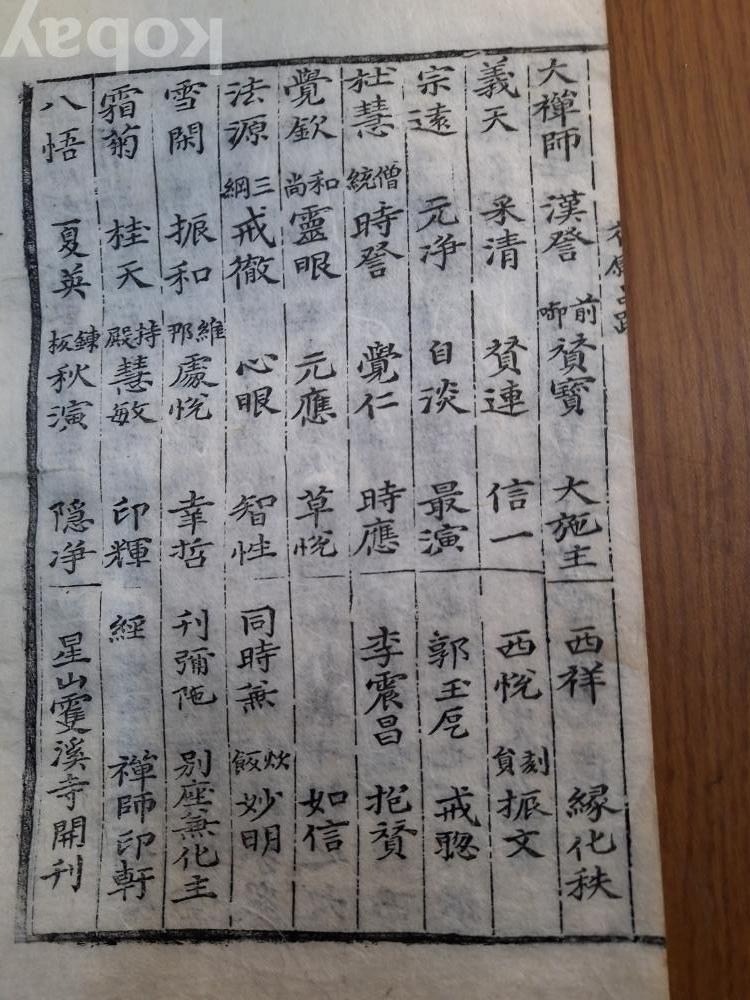 kobay
大禪師 漢詧 前啣 賛寶 大施主 西祥 緣化秩
義天 采清 賛連 信一 西悅 刻員 振文
宗遠 元淨 自淡 最演 郭玉 戒聡
社慧 僧統 時詧 覺仁 時應 李震昌 抱賛
覺欽 和尚 靈眼 元應 草悅 如信
法源 三綱 戒徹 心眼 智性 同時兼 炊飯 妙明
雪閑 振和 維那 處悅 幸哲 刊彌陁 別座兼化主
霜菊 桂天 持殿 慧敏 印輝 經 禪師印軒
八悟 夏英 鍊板 秋演 隠淨 星山雙溪寺開刊